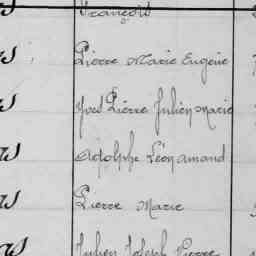 François
Pierre Marie Eugène
Yves Pierre Julien Marie
Adolphe Léon Amand
Pierre Marie
Julien Joseph Pierre